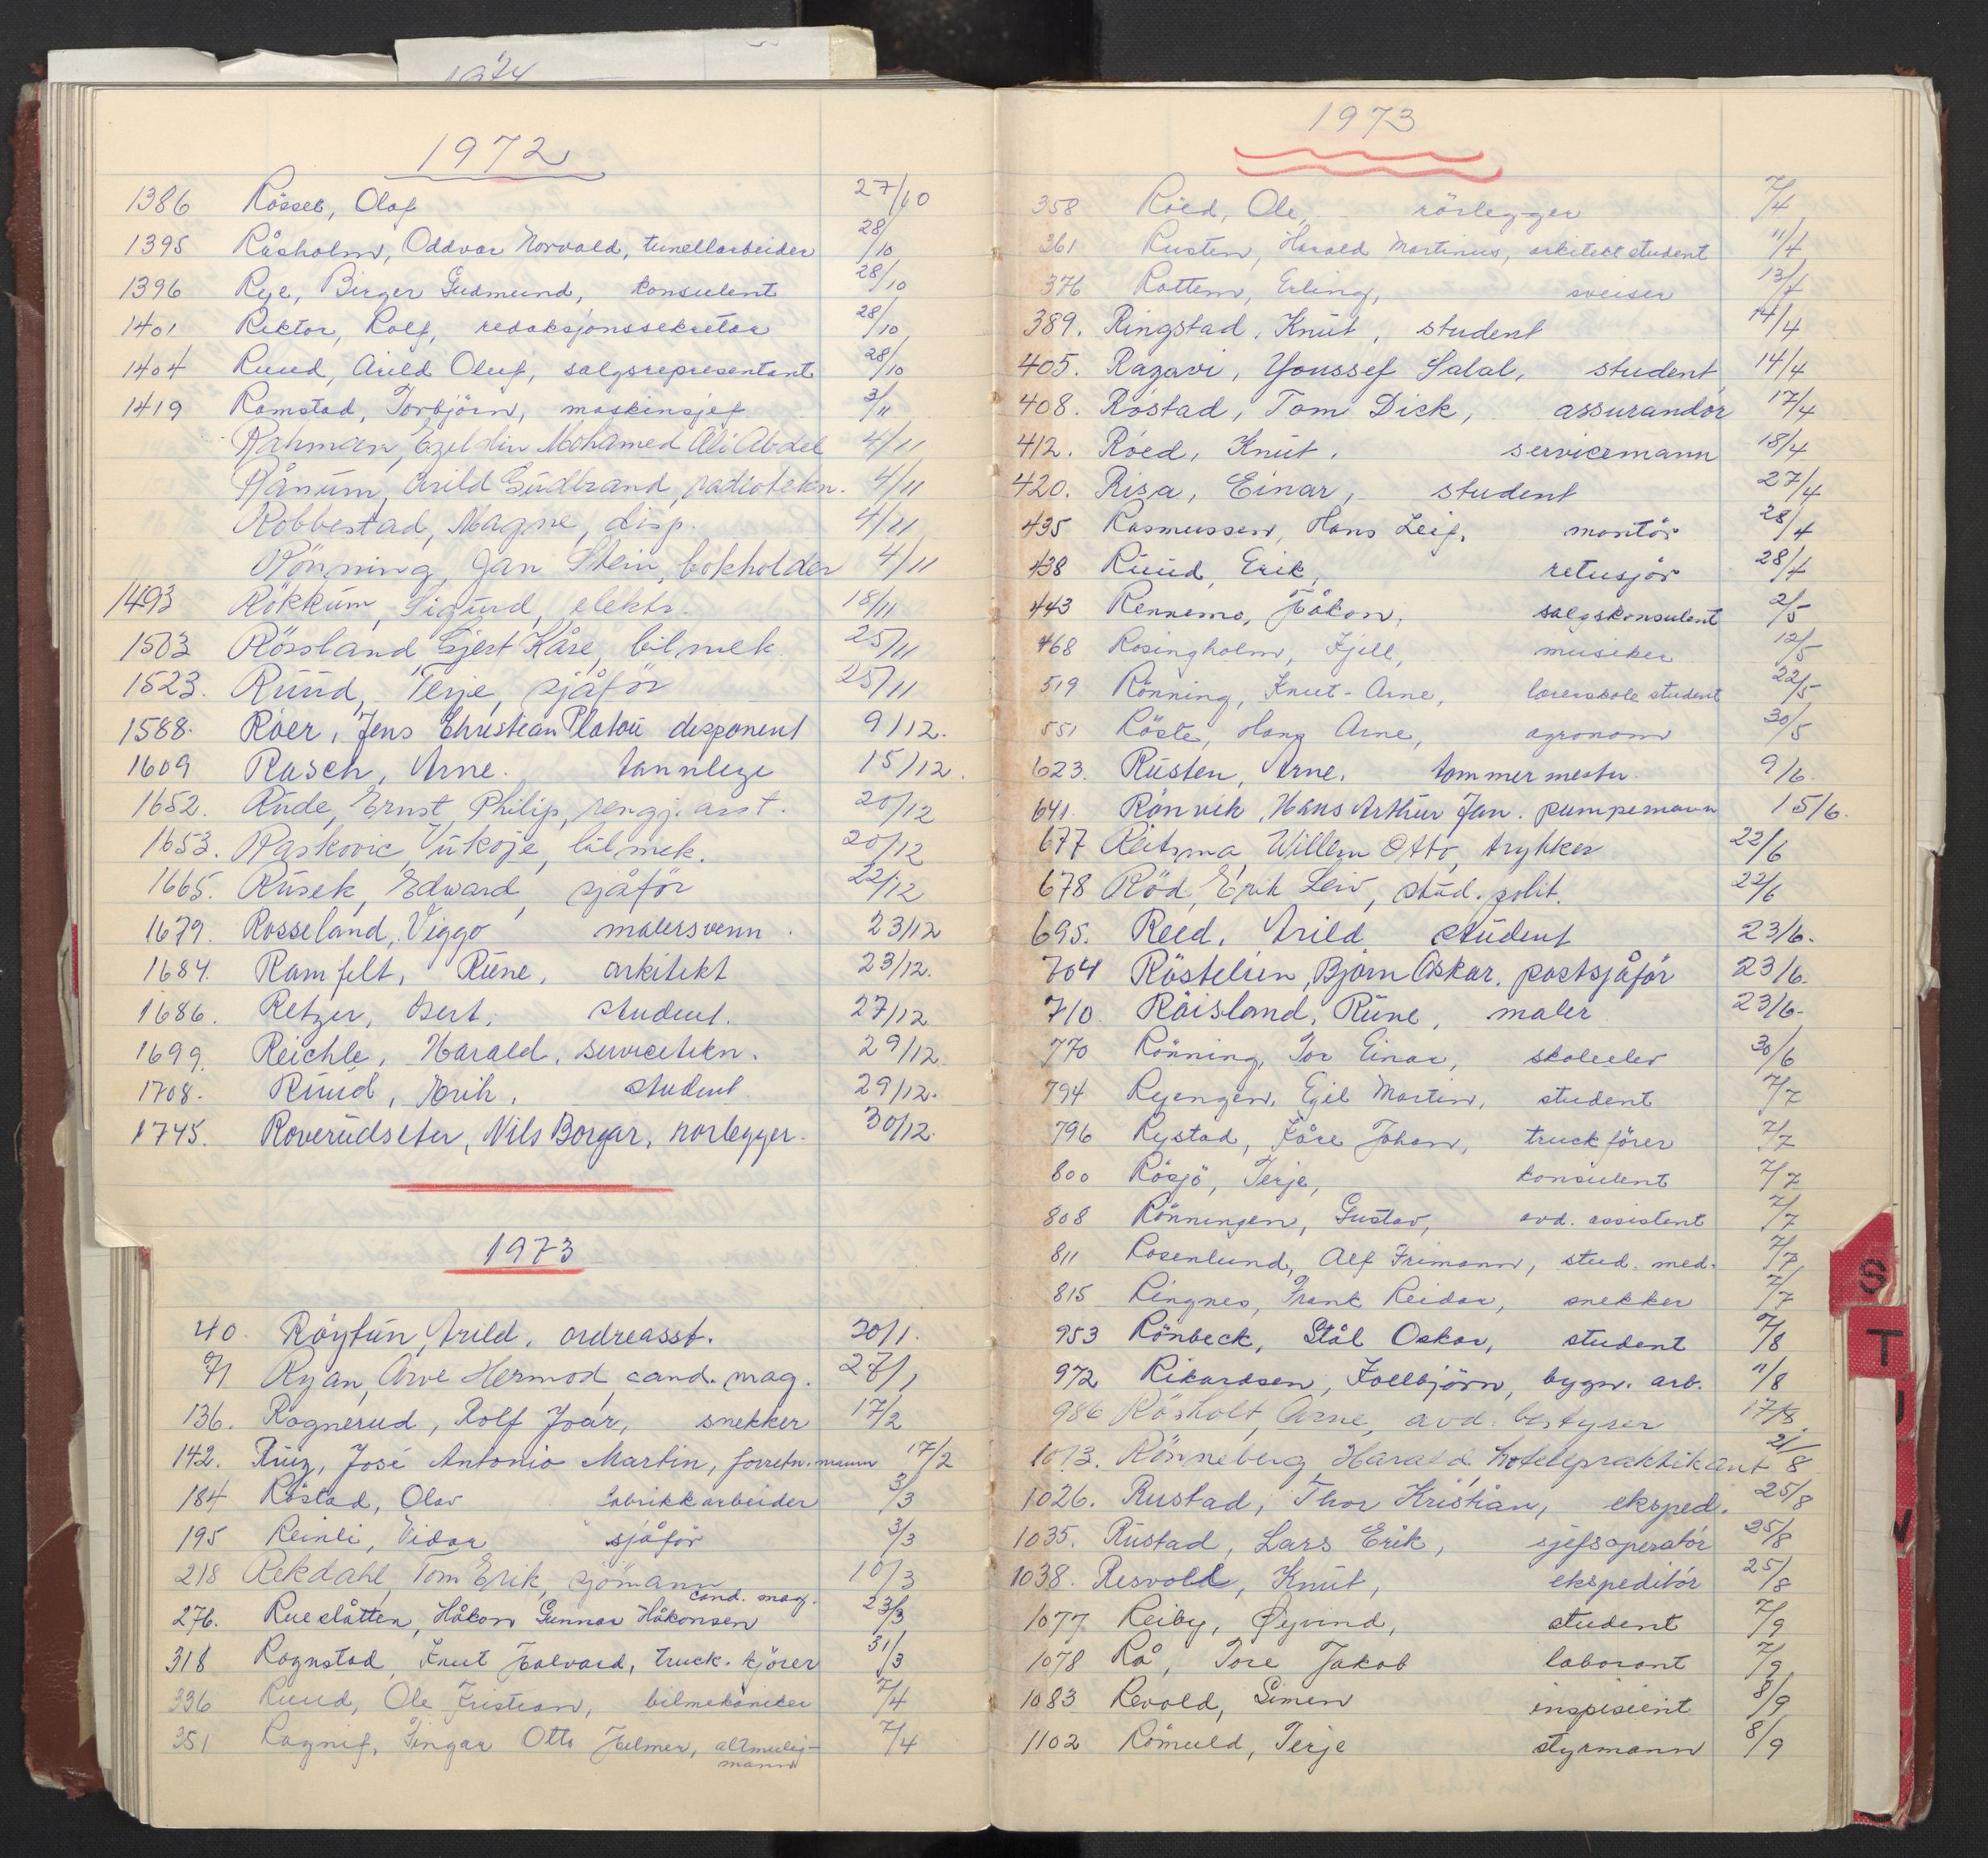 1974
1972
1386 Rösset, Olaf 27/10
1395 Råsholm, Oddvar Norvald, tunellarbeider 28/10
1396 Rye, Birger Gudmund, konsulent 28/10
1401 Rektor, Rolf, redaksjonssekretær 28/10
1404 Ruud, Arild Oluf, salgsrepresentant 28/10
1419 Ramstad, Torbjörn, maskinsjef 3/11
Rahman, Ezeldin Mohamed Ali Abdel 4/11
Rånum, Arild Gudbrand, radiotekn. 4/11
Robbestad, Magne, disp. 4/11
Rönning, Jan Stein, bokholder 4/11
1493 Rökkum, Sigurd, elektr. 18/11
1503 Rössland Gjert Kåre, bilmek. 25/11
1523. Ruud, Terje, sjåför 25/11
1588. Röer, Jens Christian Platou disponent 9/12.
1609 Rasch, Arne. tannlege 15/12.
1652. Rude, Ernst Philip, rengj. asst. 20/12
1653. Raskovic, Vukoje, bilmek. 20/12
1665. Rusek, Edward, sjåför 22/12
1679. Rosseland, Viggo malersvenn. 23/12
1684. Ramfelt, Rune, arkitekt 23/12.
1686. Retzer, Bert, student. 27/12
1699. Reichle, Harald, servicetekn. 29/12
1708. Ruud, Erik, student 29/12.
1745. Roverudseter, Nils Borgar, rörlegger. 30/12.
1973
40. Röytun, Arild, ordreasst. 20/1.
71 Ryan, Arve Hermod, cand. mag. 27/1
136. Rognerud, Rolf Ivar, snekker 17/2
142. Ruiz, José Antonio Martin, forretn.mann 17/2
184 Röstad, Olav fabrikkarbeider 3/3
195 Reinli, Vidar sjåför 3/3
218 Rekdahl, Tom Erik, sjömann 10/3
276. Rueslåtten, Håkon Gunnar Håkonsen cand. mag. 23/3
318 Rognstad, Knut Halvard, truck-kjörer 31/3
336 Ruud, Ole Kristian, bilmekaniker 7/4
351 Ragnif, Ingar Otto Helmer, altmulig-mann 7/4
1973
358 Röed, Ole, rörlegger 7/4
361 Rusten, Harald Martinus, arkitektstudent 11/4
376 Rottem, Erling, sveiser 13/4
389. Ringstad, Knut, student 14/4
405. Razavi, Youssef Salal, student 14/4
408. Röstad, Tom Dick, assurandör 17/4
412. Röed, Knut, servicemann 18/4
420. Risa, Einar, student 27/4
435 Rasmussen, Hans Leif, montör 28/4
438 Ruud, Erik, retusjör 28/4
443 Rennemo, Håkon, salgskonsulent 2/5
468 Rosingholm, Kjell, musiker 12/5
519 Rönning, Knut-Arne, lærerskolestudent 22/5
551 Röste, Hans Arne, agronom 30/5
623. Rusten, Arne, tömmermester. 9/6.
641. Rönvik, Hans Arthur Jan. pumpemann 15/6.
677 Reitsma, Willem Otto, trykker 22/6
678 Röd, Erik Leiv, stud. polit. 22/6
695. Reed, Arild student 23/6.
704 Röstelien, Björn Oskar. postsjåför 23/6.
710. Röisland, Rune, maler 23/6.
770 Rönning, Tor Einar, skoleelev 30/6
794 Ryengen, Egil Martin, student 7/7
796 Rystad, Kåre Johan, truckförer 7/7
800 Rösjö, Terje, konsulent 7/7
808 Rönningen, Gustav, avd. assistent 7/7
811 Rosenlund, Alf Frimann, stud. med. 7/7
815 Ringnes, Frank Reidar, snekker 7/7
953 Rönbeck, Stål Oskar, student 7/8
972 Rikardsen, Kollbjörn, bygn. arb. 11/8
986 Rösholt, Arne, avd. bestyrer 17/8
1013. Rönneberg Harald, hotellpraktikant 21/8
1026. Rustad, Thor Kristian, eksped. 25/8
1035. Rustad, Lars Erik, sjefsoperatör 25/8
1038. Resvoll, Knut, ekspeditör 25/8
1077 Reiby, Øyvind, student 7/9
1078 Rå, Tore Jakob laborant 7/9
1083 Revold, Simen inspisient 8/9
1102 Römuld, Terje styrmann 8/9
S
T